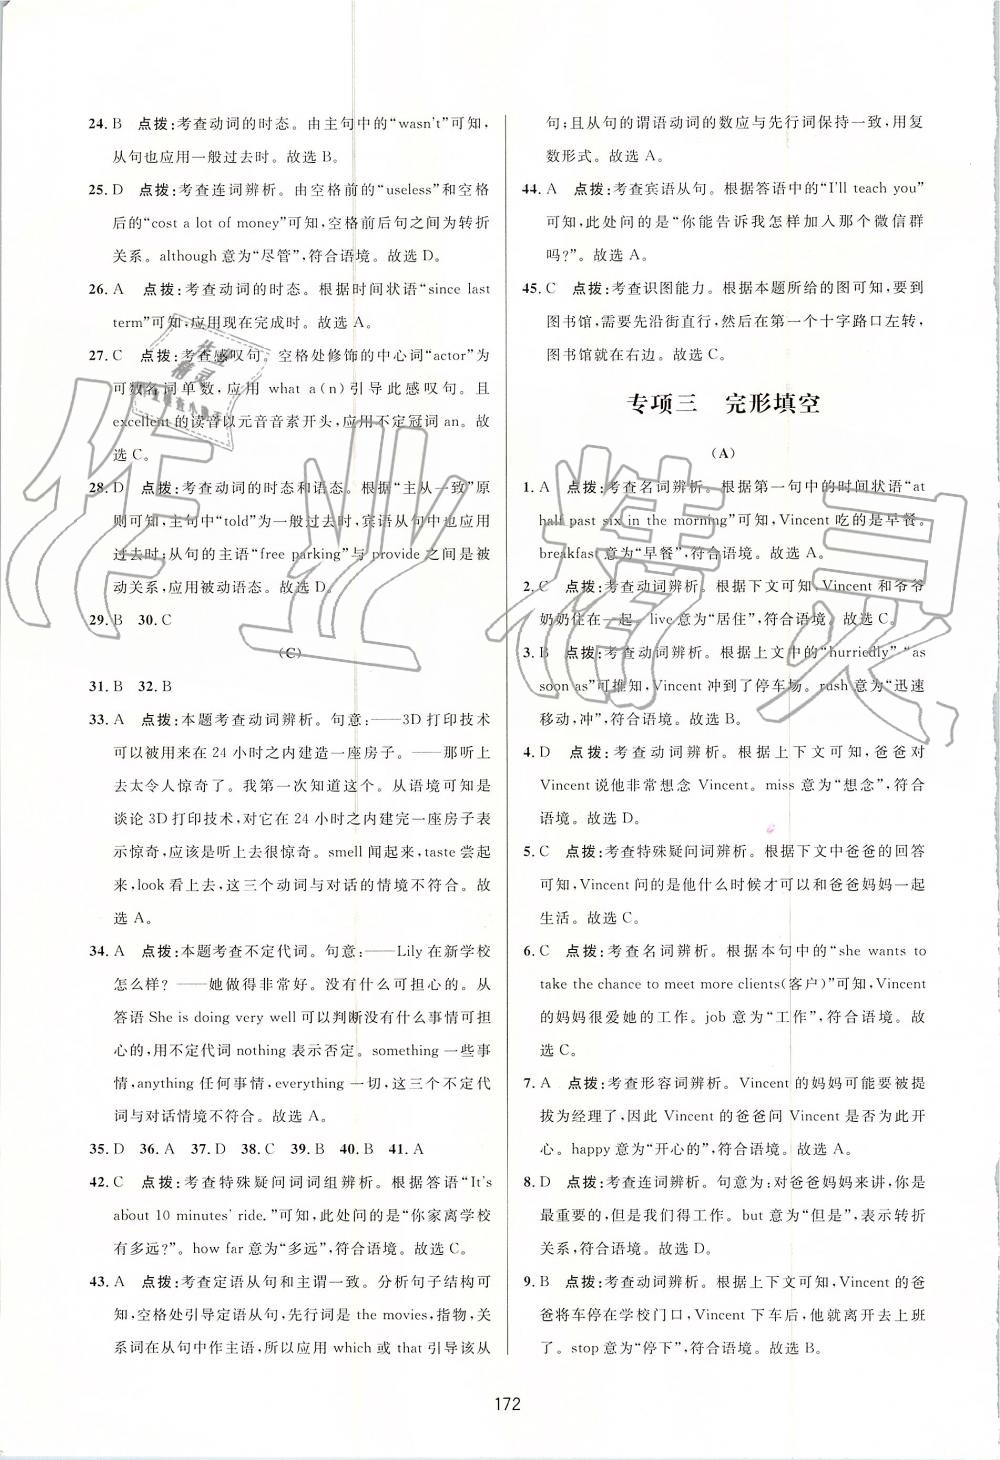 24. B 点拨:考查动词的时态。由主句中的“wasn't”可知,
从句也应用一般过去时。故选 B。
25. D 点拨:考查连词辨析。由空格前的“useless”和空格
后的“cost a lot of money”可知,空格前后句之间为转折
关系。although 意为“尽管”,符合语境。故选 D。
26. A 点拨:考查动词的时态。根据时间状语“since last
term”可知,应用现在完成时。故选 A。
27. C 点拨:考查感叹句。空格处修饰的中心词“actor”为
可数名词单数,应用 what a(n)引导此感叹句。且
excellent 的读音以元音音素开头,应用不定冠词 an。故
选 C。
28. D 点拨:考查动词的时态和语态。根据“主从一致”原
则可知,主句中“told”为一般过去时,宾语从句中也应用
过去时;从句的主语“free parking”与 provide 之间是被
动关系,应用被动语态。故选 D。
29. B 30. C
(C)
31. B 32. B
33. A 点拨:本题考查动词辨析。句意:——3D 打印技术
可以被用来在 24 小时之内建造一座房子。——那听上
去太令人惊奇了!我第一次知道这个。从语境可知是
谈论 3D 打印技术,对它在 24 小时之内建完一座房子表
示惊奇,应该是听上去很惊奇。smell 闻起来,taste 尝起
来,look 看上去,这三个动词与对话的情境不符合。故
选 A。
34. A 点拨:本题考查不定代词。句意:——Lily 在新学校
怎么样? ——她做得非常好。没有什么可担心的。从
答语 She is doing very well 可以判断没有什么事情可担
心的,用不定代词 nothing 表示否定。something 一些事
情,anything 任何事情,everything 一切,这三个不定代
词与对话情境不符合。故选 A。
35. D 36. A 37. D 38. C 39. B 40. B 41. A
42. C 点拨:考查特殊疑问词词组辨析。根据答语“It's
about 10 minutes' ride.”可知,此处问的是“你家离学校
有多远?”。how far 意为“多远”,符合语境。故选 C。
43. A 点拨:考查定语从句和主谓一致。分析句子结构可
知,空格处引导定语从句,先行词是 the movies,指物,关
系词在从句中作主语,所以应用 which 或 that 引导该从
句;且从句的谓语动词的数应与先行词保持一致,用复
数形式。故选 A。
44. A 点拨:考查宾语从句。根据答语中的“I'll teach you”
可知,此处问的是“你能告诉我怎样加入那个微信群
吗?”。故选 A。
45. C 点拨:考查识图能力。根据本题所给的图可知,要到
图书馆,需要先沿街直行,然后在第一个十字路口左转,
图书馆就在右边。故选 C。
专项三 完形填空
(A)
1. A 点拨:考查名词辨析。根据第一句中的时间状语“at
half past six in the morning”可知,Vincent 吃的是早餐。
breakfast 意为“早餐”,符合语境。故选 A。
2. C 点拨:考查动词辨析。根据下文可知,Vincent 和爷爷
奶奶住在一起。live 意为“居住”,符合语境。故选 C。
3. B 点拨:考查动词辨析。根据上文中的“hurriedly” “as
soon as”可推知,Vincent 冲到了停车场。rush 意为“迅速
移动,冲”,符合语境。故选 B。
4. D 点拨:考查动词辨析。根据上下文可知,爸爸对
Vincent 说他非常想念 Vincent。miss 意为“想念”,符合
语境。故选 D。
5. C 点拨:考查特殊疑问词辨析。根据下文中爸爸的回答
可知,Vincent 问的是他什么时候才可以和爸爸妈妈一起
生活。故选 C。
6. C 点拨:考查名词辨析。根据本句中的“she wants to
take the chance to meet more clients(客户)”可知,Vincent
的妈妈很爱她的工作。job 意为“工作”,符合语境。故
选 C。
7. A 点拨:考查形容词辨析。Vincent 的妈妈可能要被提
拔为经理了,因此 Vincent 的爸爸问 Vincent 是否为此开
心。happy 意为“开心的”,符合语境。故选 A。
8. D 点拨:考查连词辨析。句意为:对爸爸妈妈来讲,你是
最重要的,但是我们得工作。but 意为“但是”,表示转折
关系,符合语境。故选 D。
9. B 点拨:考查动词辨析。根据上下文可知,Vincent 的爸
爸将车停在学校门口,Vincent 下车后,他就离开去上班
了。stop 意为“停下”,符合语境。故选 B。
172
作业精灵